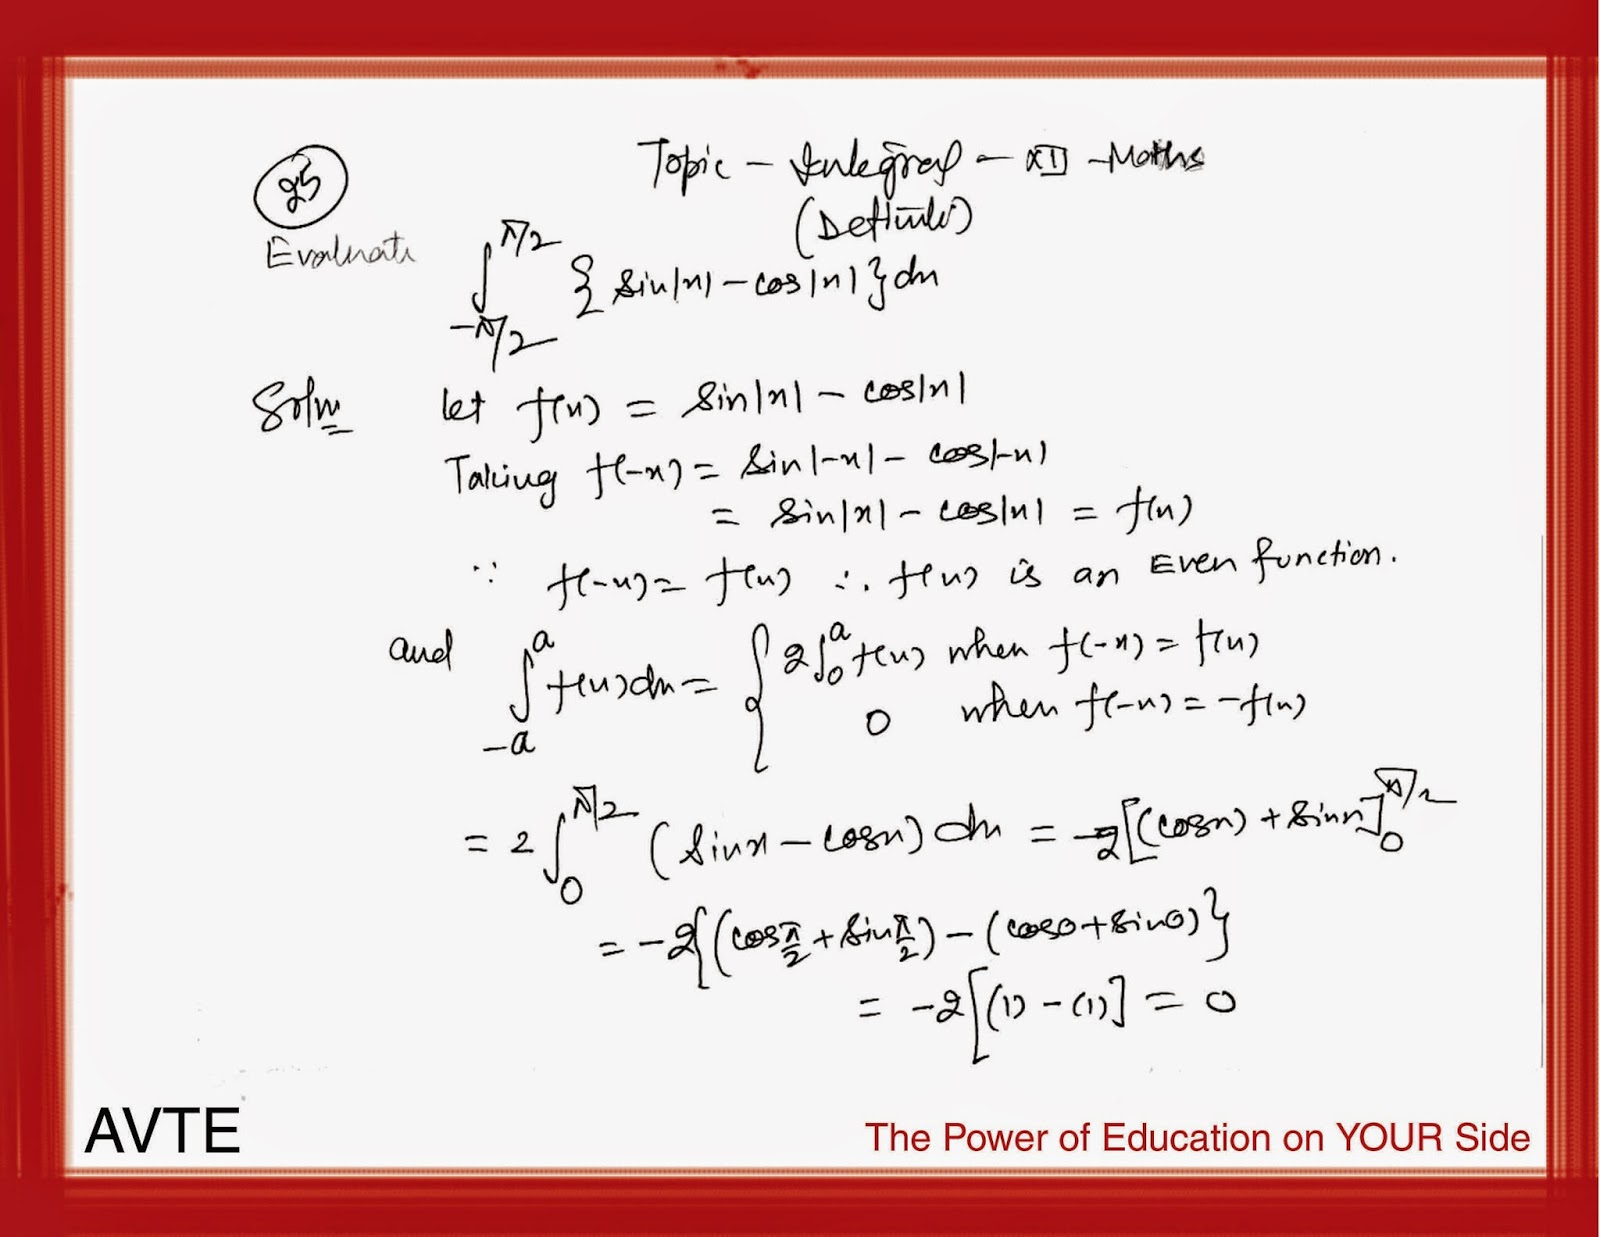 25
Topic - Integral - XII - Maths
(Definite)
Evaluate ∫_{-π/2}^{π/2} {sin|x| - cos|x|}dx
Soln let f(x) = sin|x| - cos|x|
Taking f(-x) = sin|-x| - cos|-x|
= sin|x| - cos|x| = f(x)
∵ f(-x) = f(x) ∴ f(x) is an Even function.
and ∫_{-a}^{a} f(x)dx = { 2∫_0^a f(x) when f(-x) = f(x)
0 when f(-x) = -f(x)
= 2∫_0^{π/2} (sinx - cosx) dx = -2[(cosx) + sinx]_0^{π/2}
= -2{(cos π/2 + sin π/2) - (cos0 + sin0)}
= -2[(1) - (1)] = 0
AVTE
The Power of Education on YOUR Side